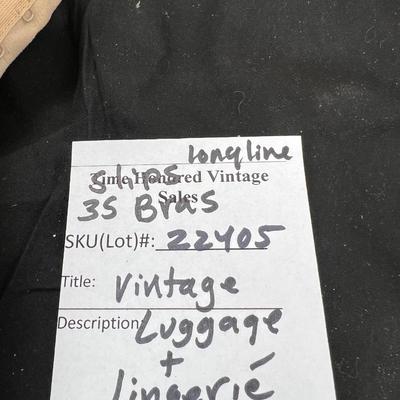 longline
slips
Time Honored Vintage
35 Bras
Sales
SKU(Lot)#: 22405
Title: Vintage
Description: Luggage
+
lingerié